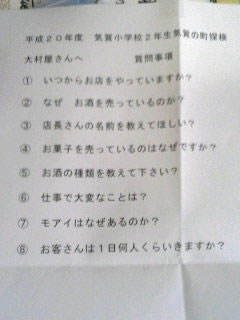 平成２０年度　気質小学校２年生気質の町探検
大村屋さんへ　　　質問事項
①　いつからお店をやっていますか？
②　なぜ　お酒を売っているのか？
③　店長さんの名前を教えてほしい？
④　お菓子を売っているのはなぜですか？
⑤　お酒の種類を教えて下さい？
⑥　仕事で大変なことは？
⑦　モアイはなぜあるのか？
⑧　お客さんは１日何人くらいきますか？